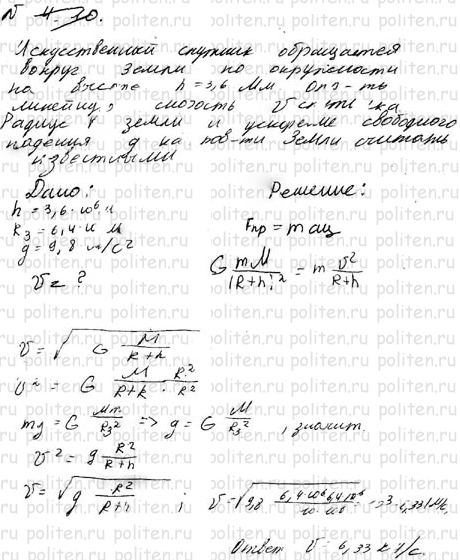 N 430.
Искусственный спутник обращается
вокруг Земли по окружности
на высоте h = 3,6 Мм. Опр-ть
линейну скорость спутника
Радиус Земли и ускорение свободного
падения g на пов-ти Земли считать
известными
Дано:
h = 3,6·10⁶ м
R₃ = 6,4 м
g = 9,8 м/с²
v = ?
Решение:
Fпр = m aц
G mM/(R+h)² = m v²/(R+h)
v = √(G M/(R+h))
v² = G M/(R+h) · R²/R²
mg = G Mm/R₃² => g = G M/R₃², значит.
v² = g R²/(R+h)
v = √(g R²/(R+h)) ;
v = √(9,8
Ответ v = 6,33 км/с.